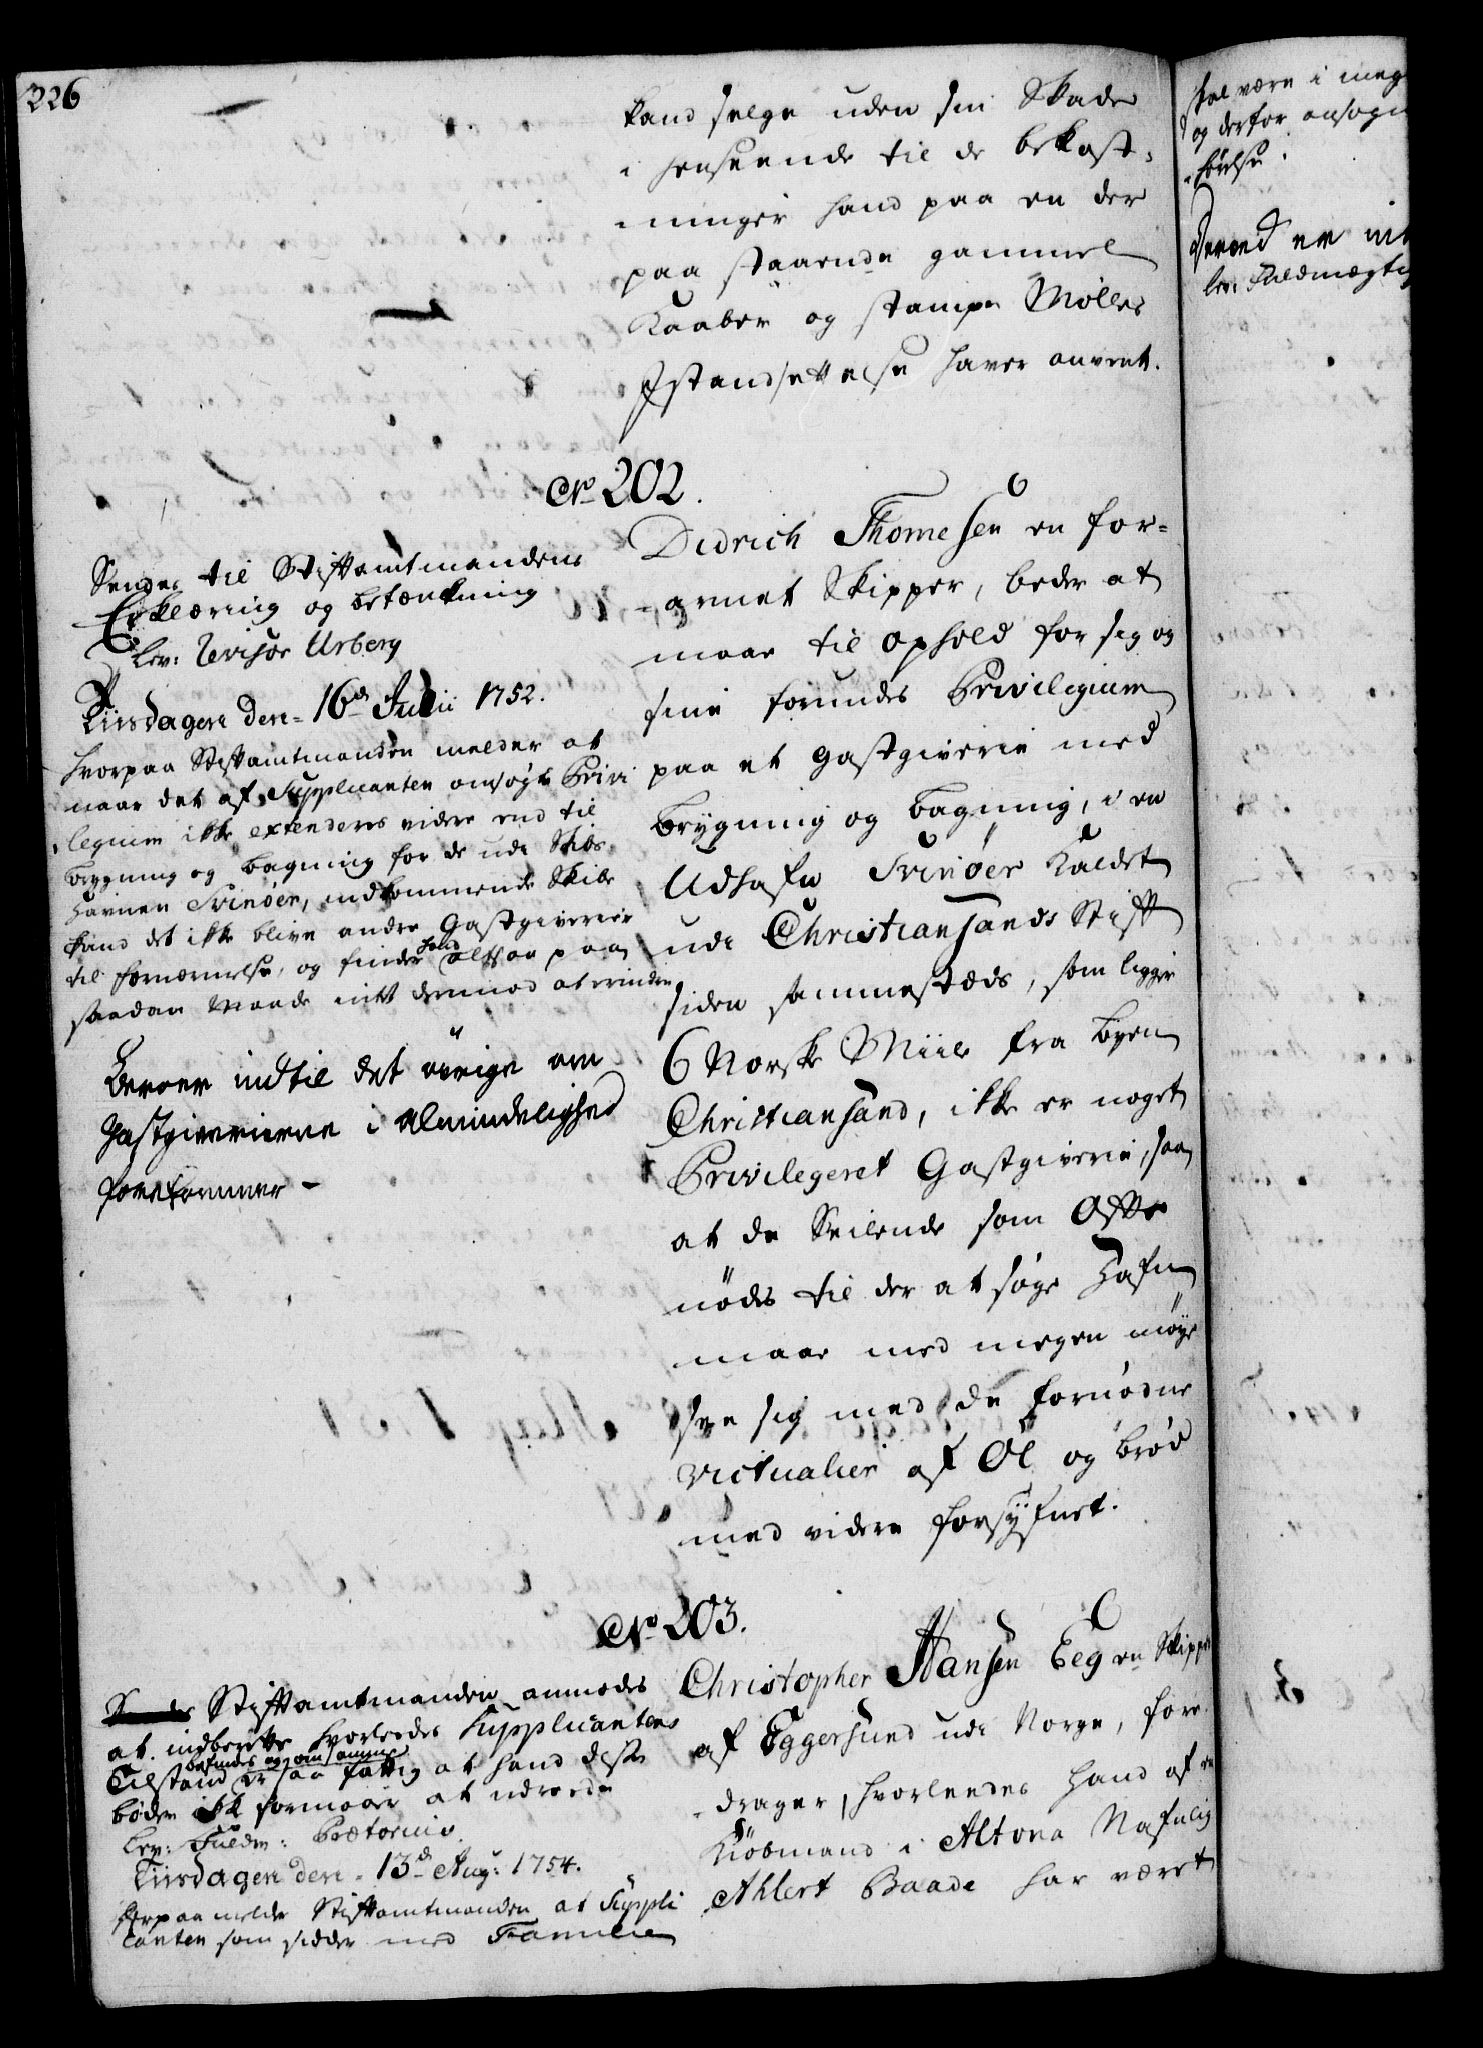 226
kand selge uden sin Skade
i henseende til de bekost-
ninger hand paa en der
paa staaende gammel
Kaaber og stampe Mølles
Istandsættelse haver anvent.
No 202.
Didrich Thomesen en for-
armet Skipper, beder at
maae til ophold for sig og
sine forundes Privilegium
paa et Gastgiverie med
brygning og bagning, i en
Udhafn Svinøer Kaldet
udi Christiansands Stift
siden sammestæds, som ligger
6 Norske Miile fra byen
Christiansand, ikke er noget
Privilegeret Gastgiverie, saa
at de Seilende som Ofte
nødes til der at søge Hafn
maae med megen møye
see sig med de fornødne
victualier af Øl og brød
med videre forsÿfnet.
Sendes til Stiftamtmandens
Erklæring og betænkning
Lev: Revisor Urberg
Tiirsdagen den 16de Julii 1752.
hvorpaa Stiftamtmanden melder at
naar det af Supplicanten ansøgte Privi
legium ikke extenderes videre end til
brygning og bagning for de udi Skibs
Havnen Svinöer, indkommende Skibe
kand det ikke blive andre Gastgiverier
til fornærmelse, og finder hand altsaa paa
saadan Maade intet dermod at erindre
Beroer indtil det øvrige om
Gastgiverierne i Almindelighed
forekommer -
No 203.
Christopher Hansen Eeg en Skipper
af Eggersund udi Norge, fore-
drager, hvorleedes hand af en
Kiöbmand i Altona Nafnlig
Ahlert Baade har været
Stiftamtmanden anmodes
at indberette hvorledes Supplicantens
Tilstand befindes og om hand er saa fattig at hand disse
bøder ikke formaaer at udreede
Lev: Fuldm: Prætorius
Tiirsdagen den 13de Aug: 1754.
herpaa melder Stiftamtmanden at Suppli
canten som sidder med Familie
skal være i meg
og derfor ansøg
Derved er int
lev: Fuldmægtig